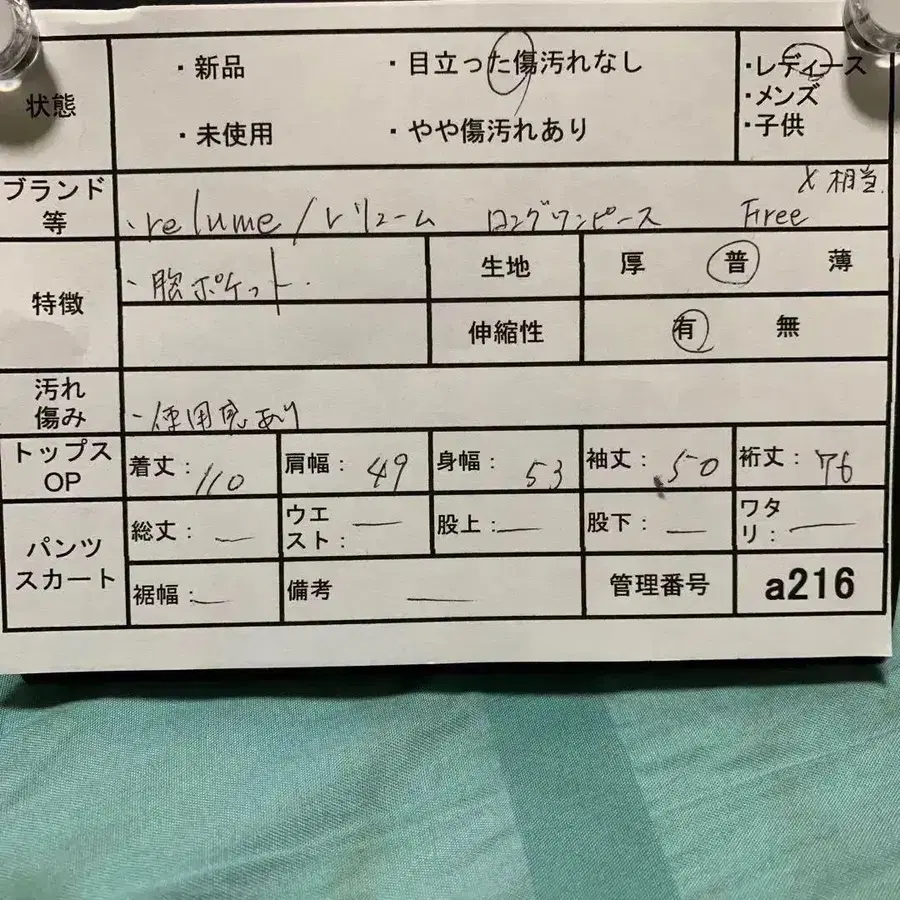 状態
・新品
・目立った傷汚れなし
・未使用
・やや傷汚れあり
・レディース
・メンズ
・子供
ブランド
等
・relume/レリューム ロングワンピース Free
相当
特徴
・胸ポケット・
生地
厚 普 薄
伸縮性
有 無
汚れ
傷み
・使用感あり
トップス
OP
着丈：110
肩幅：49
身幅：53
袖丈：50
裄丈：76
パンツ
スカート
総丈：—
ウエ
スト：—
股上：—
股下：—
ワタ
リ：—
裾幅：—
備考 —
管理番号
a216